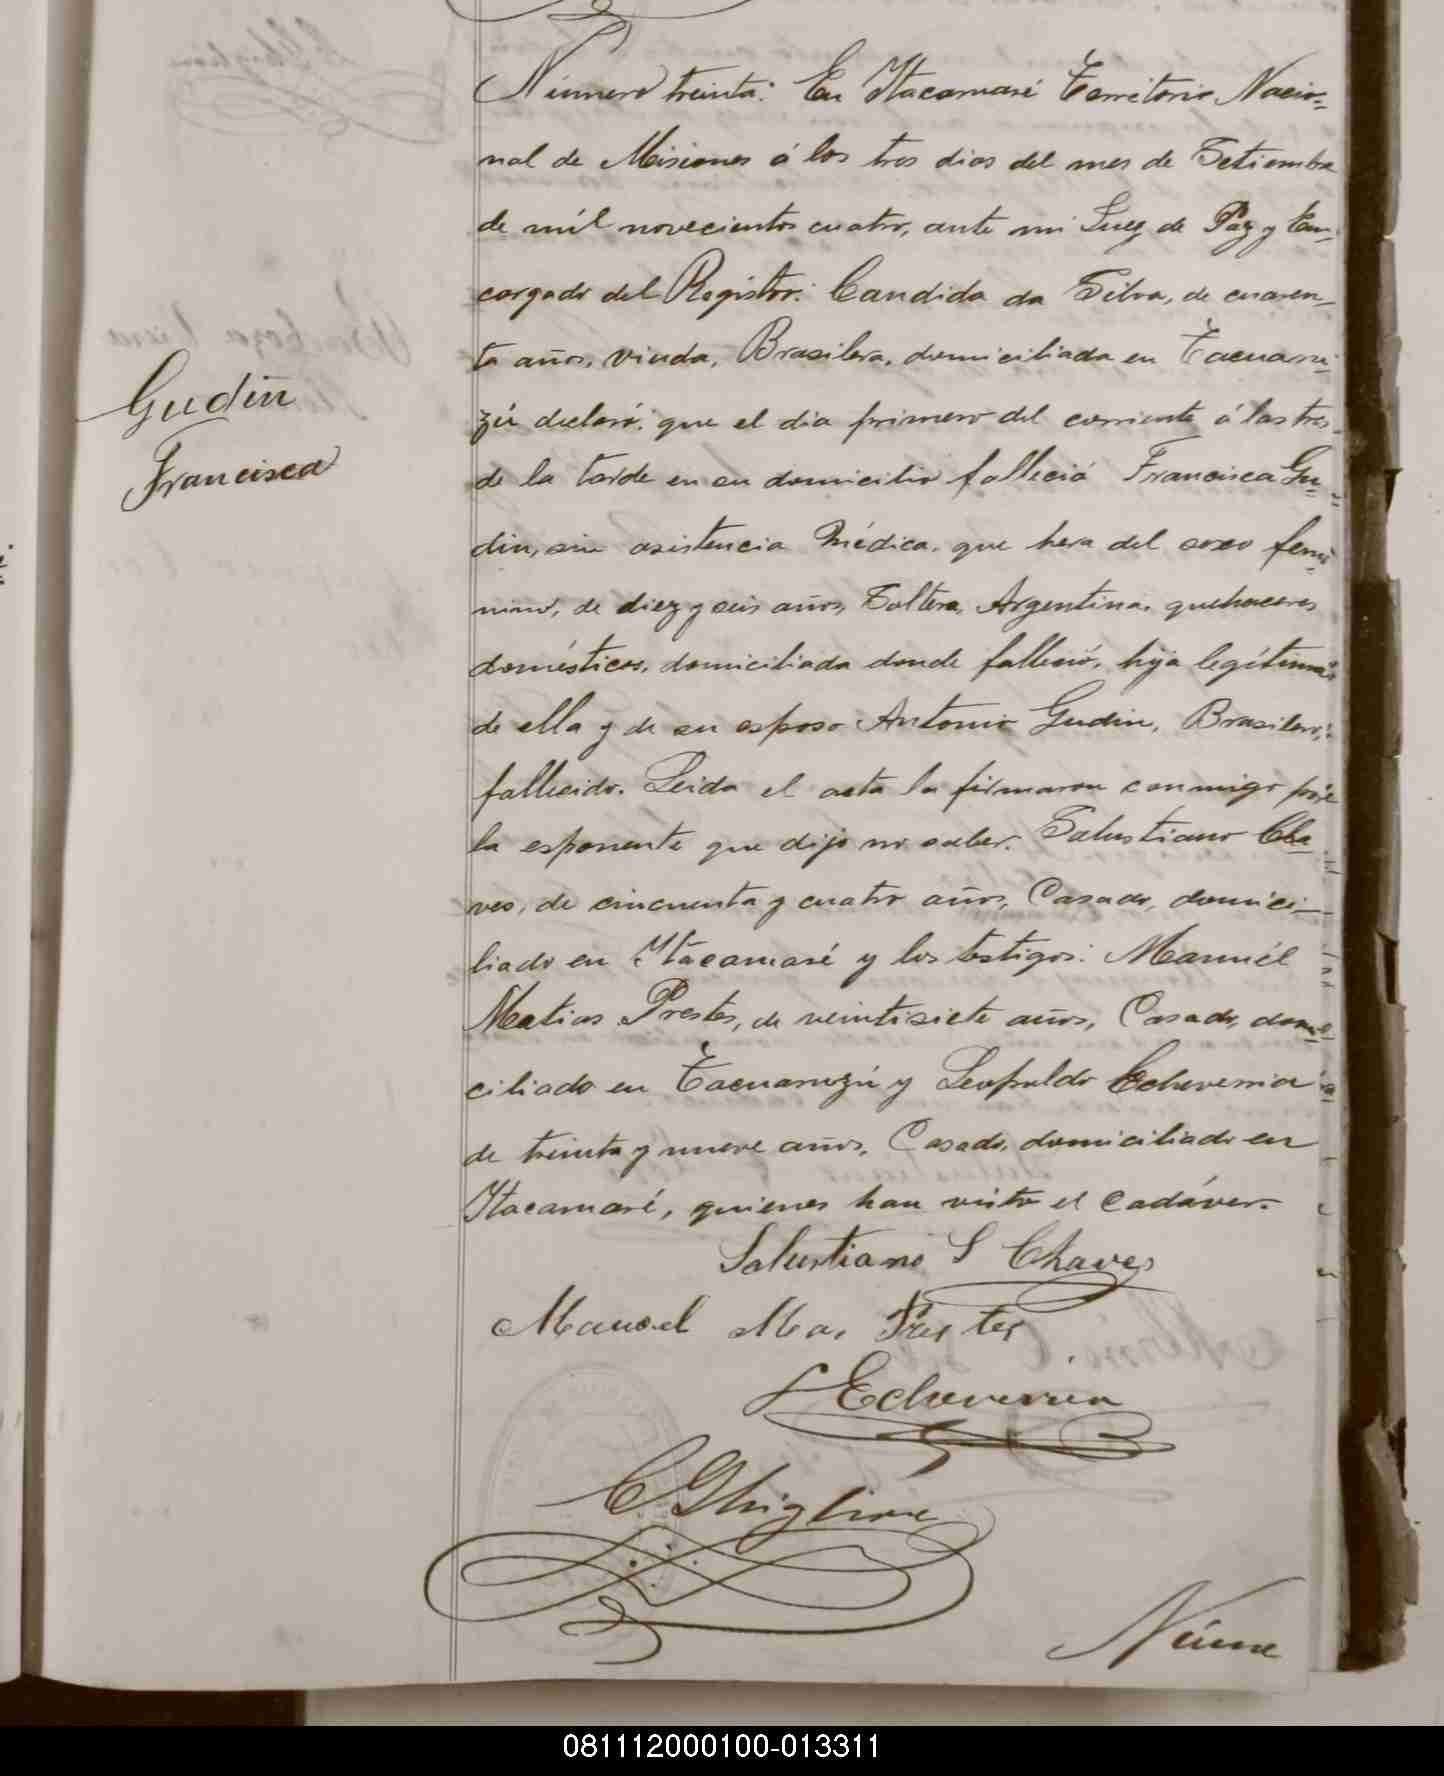 Número treinta: En Ytacaruaré Territorio Nacio-
nal de Misiones á los tres dias del mes de Setiembre
de mil novecientos cuatro, ante mi Juez de Paz y En-
cargado del Registro: Candida da Silva, de cuaren-
ta años, viuda, Brasilera, domiciliada en Tacuaru-
zú declaró: que el dia primero del corriente á las tres
de la tarde en su domicilio falleció Francisca Gu-
Gudin
Francisca
din, sin asistencia Médica, que hera del sexo feme-
nino, de diez y seis años, Soltera, Argentina, quehaceres
domésticos, domiciliada donde falleció, hija legítima
de ella y de su esposo Antonio Gudin, Brasilero,
fallecido. Leida el acta la firmaron conmigo por
la esponente que dijo no saber. Salustiano Cha-
ves, de cincuenta y cuatro años, Casado, domici-
liado en Ytacaruaré y los testigos: Manuél
Matias Prestes, de veintisiete años, Casado, domi-
ciliado en Tacuaruzú y Leopoldo Echeverria
de treinta y nueve años, Casado, domiciliado en
Ytacaruaré, quienes han visto el cadáver.-
Salustiano S Chaves
Manoel Mas Prestes
L Echeverria
C. Ghiglione
Núme
081112000100-013311